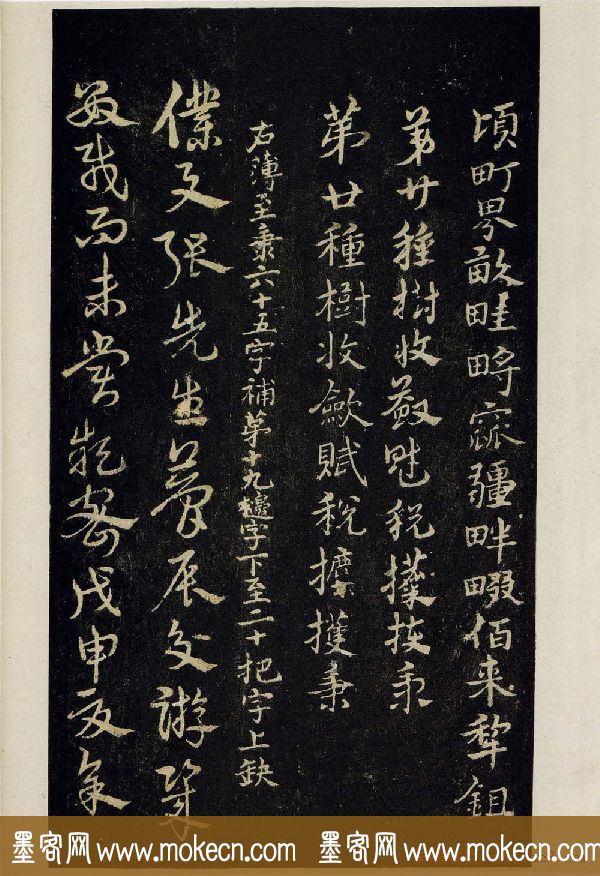 頃町界畝畦畤疆畔畷佰耒犂鉏
第廿種樹收斂賦稅穫秉
第廿種樹收斂賦稅擭秉
右薄至秉六十五字補第十九籧字下至二十把字上缺
僕友張先生夢辰交游幾
數載而未嘗戊申夏余
墨客网 www.mokecn.com 墨客网 www.mokecn.com